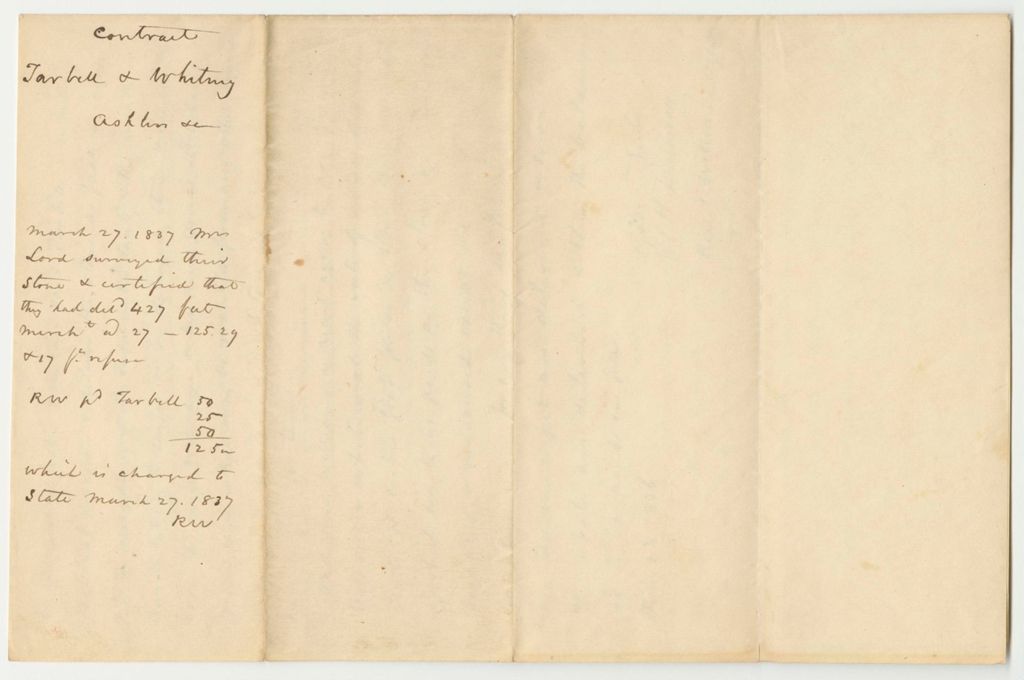 Contract
Tarbell & Whitney
Ashler &c
March 27. 1837 Mr
Lord surveyed their
Stone & certified that
they had deld 427 feet
mercht @ 27 — 125.29
& 17 ft refuse
RW pd Tarbell 50
25
50
125
which is charged to
State March 27. 1837
RW